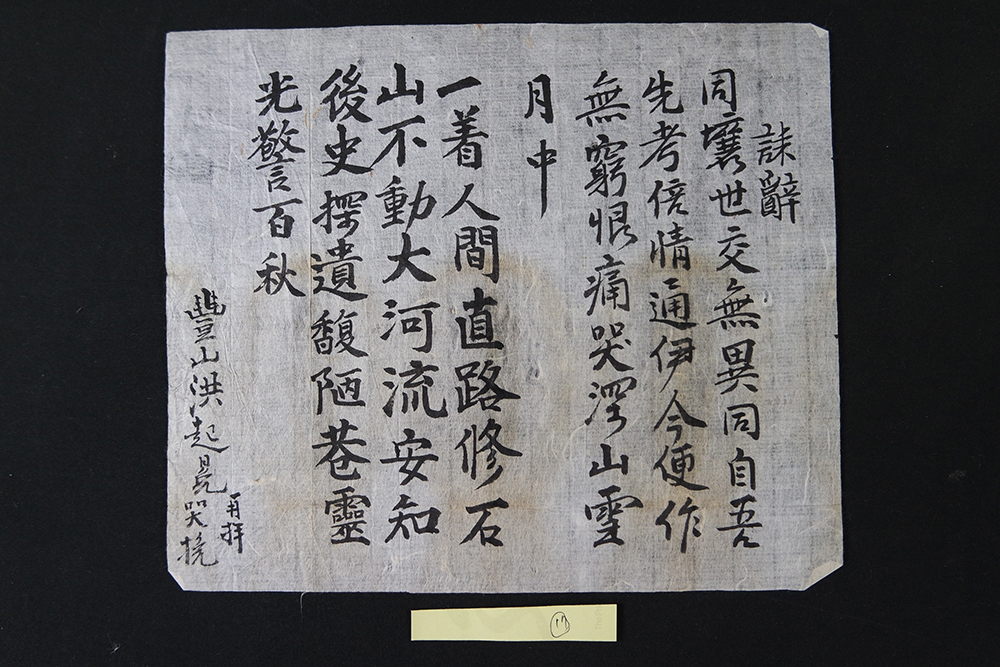 誄辭
同壤世交無異同自吾
先考倍情通伊今便作
無窮恨痛哭深山雪
月中
一着人間直路修石
山不動大河流安知
後史探遺馥陋巷靈
光警百秋
豐山洪起晃再拜哭挽
17